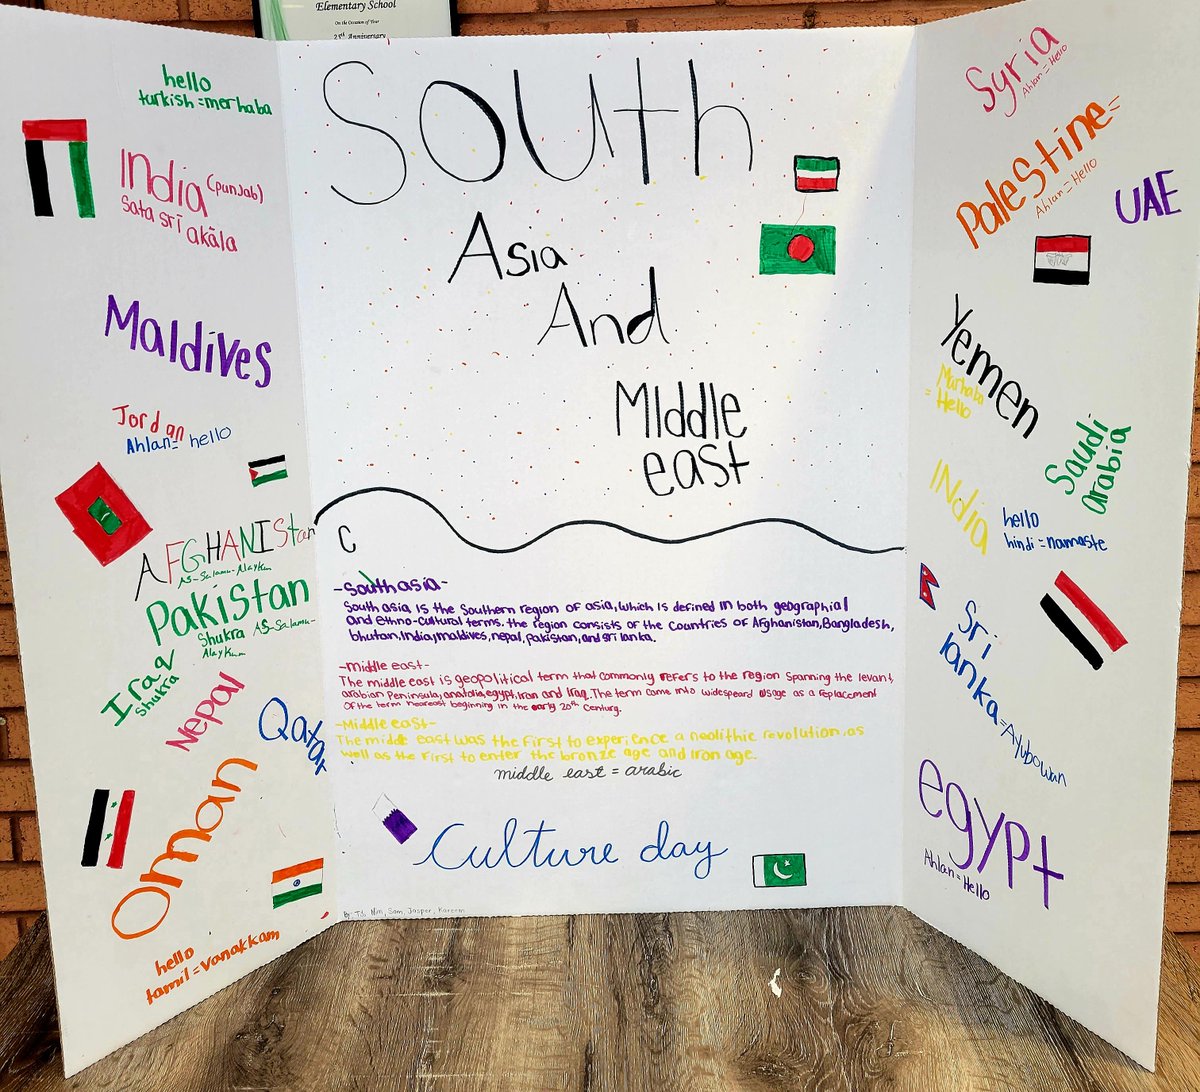 Elementary School
On the Occasion of Your
25th Anniversary
hello
turkish = merhaba
India (punjab)
sata srī akāla
Maldives
Jordan
Ahlan = hello
AFGHANIStan
AS-Salamu-Alaykum
Pakistan
Shukra AS-Salamu-
Alaykum
Iraq
Shukra
Nepal
Qatar
Oman
hello
tamil = vanakkam
South
Asia
And
Middle
east
C
-South asia-
South asia is the Southern region of asia, which is defined in both geographial
and ethno-cultural terms. the region consists of the countries of Afghanistan, Bangladesh,
bhutan, India, maldives, nepal, pakistan, and sri lanka.
-middle east-
The middle east is geopolitical term that commonly refers to the region spanning the levant,
arabian peninsula, anatolia, egypt, iran and iraq. The term came into widespeard usage as a replacement
of the term neareast beginning in the early 20th century.
-Middle east-
The middle east was the first to experience a neolithic revolution, as
well as the first to enter the bronze age and iron age.
middle east = arabic
Culture day
By: Nim, Sam, Jasper, Kareem
Syria
Ahlan = Hello
Palestine =
Ahlan = Hello
UAE
Yemen
Marhaba
= Hello
Saudi
arabia
India
hello
hindi = namaste
Sri
lanka = Ayubowan
egypt
Ahlan = Hello